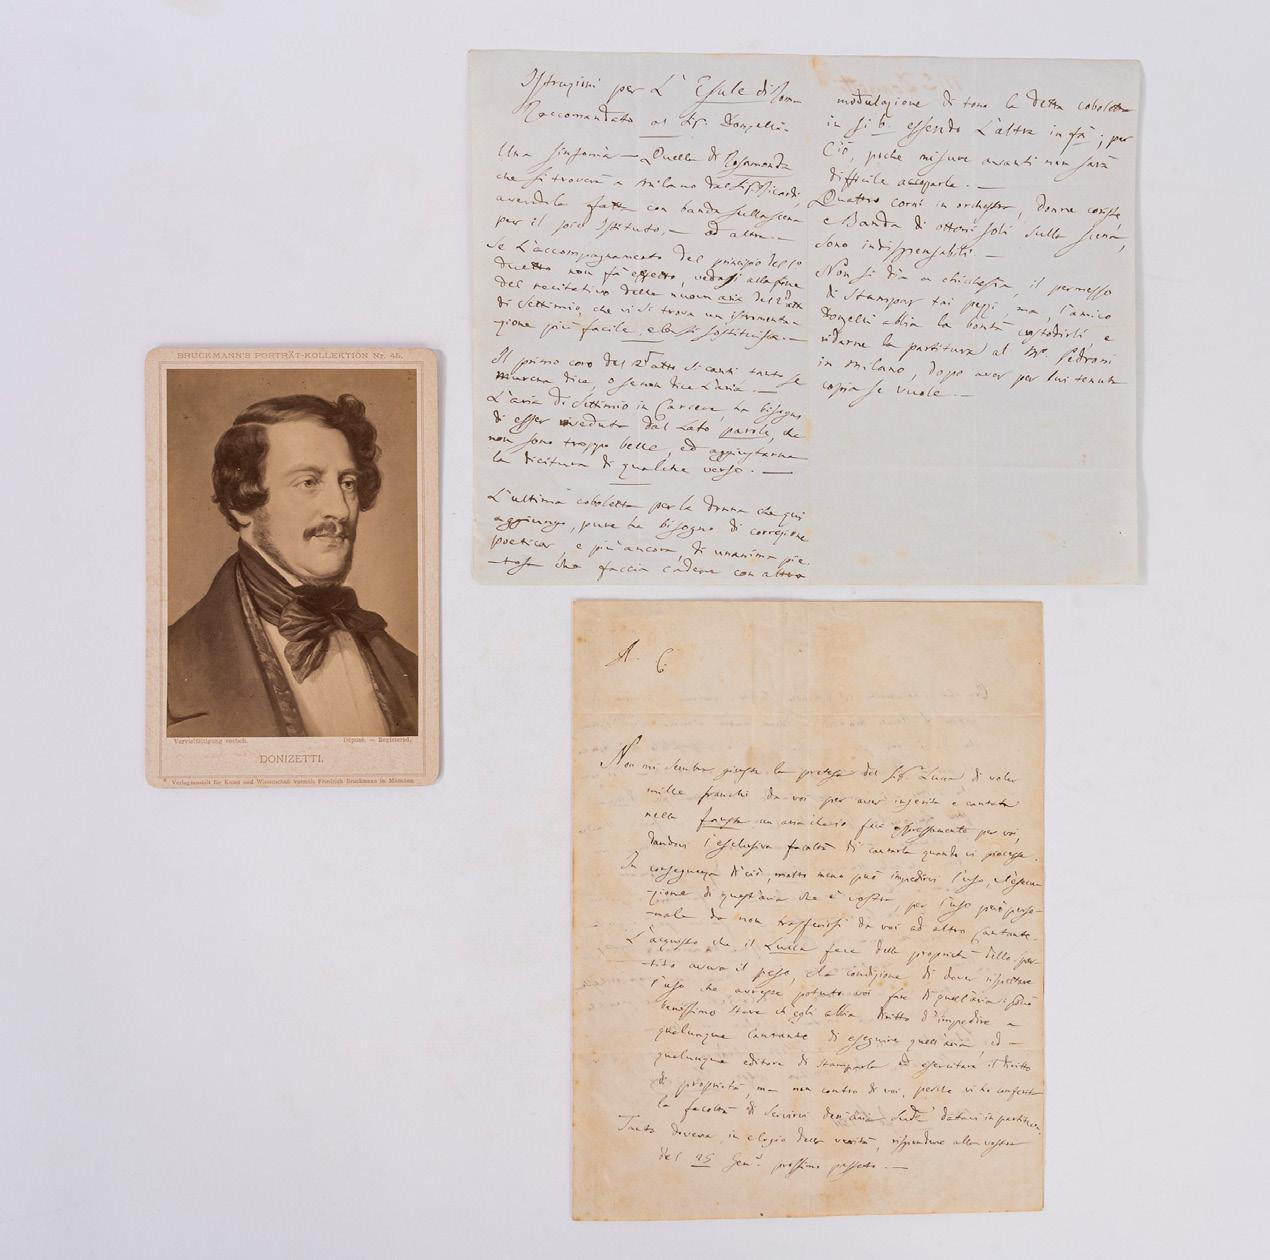 BRUCKMANN'S PORTRÄT-KOLLEKTION Nr. 45.
Vervielfältigung vorbeh.
Déposé. — Registered.
DONIZETTI.
Verlagsanstalt für Kunst und Wissenschaft vormals Friedrich Bruckmann in München.
Istruzioni per L'Esule di Roma
Raccomandato al Sig. Donzelli-
Una sinfonia — Quella di Rosmonda
che si troverà a Milano dal Sig. Ricordi,
avendola fatta con banda sulla scena
per il pio Istituto, — od altra. —
Se L'accompagnamento del principio del 1º
duetto non fa effetto, vedasi alla fine
del recitativo della nuova aria del 2º atto
di Settimio, che vi si trova un istromenta-
zione più facile e la si sostituisca. —
Il primo coro del 2º atto si canti tanto se
Murena dice, o se non dice L'aria. —
L'aria di Settimio in Carcere, ha bisogno
di esser veduta dal Lato parole, che
non sono troppo belle, ed aggiustarne
la dicitura di qualche verso. —
L'ultima cabaletta per la donna che qui
aggiungo, pure ha bisogno di correzione
poetica, e più ancora, di unanima pie-
tosa che faccia cadere con altra
modulazione di tono la detta cabaletta
in si b essendo L'altra in fa; per
Ciò, poche misure avanti non sarà
difficile accoparla. —
Quattro corni in orchestra, donne coriste,
e Banda di ottoni soli sulla scena,
sono indispensabili —
Non si dia a chichesia, il permesso
di stampar tai pezzi, ma, l'amico
Donzelli abbia la bontà custodirli, e
ridarne la partitura al Mº Pedroni
in Milano, dopo aver per lui tenuta
copia se vuole. —
A. C.
Non mi sembra giusta la pretesa del Sig. Lucca di voler
mille franchi da voi per aver inserita e cantata
nella Fausta un aria che io feci espressamente per voi,
dandovi l'esclusiva facoltà di cantarla quando vi piacesse.
In conseguenza di ciò, molto meno può impedirvi l'uso, e l'esecu-
zione di quest'aria che è vostra, per l'uso però perso-
nale da non trasferirsi da voi ad altro Cantante.
L'acquisto che il Lucca fece della proprietà dello spar-
tito aveva il peso, e la condizione di dover rispettare
l'uso che avreste potuto voi fare di quell'aria; può
benissimo stare ch'egli abbia diritto d'impedire a
qualunque Cantante di eseguire quell'aria, ed a
qualunque editore di stamparla ed esercitare il diritto
di proprietà, ma non contro di voi, perché vi ho conferito
la facoltà di servirvi dell'aria sudª datavi in partitura.
Tanto doveva, in elogio della verità, rispondere alla vostra
del 25 Genº. prossimo passato. —